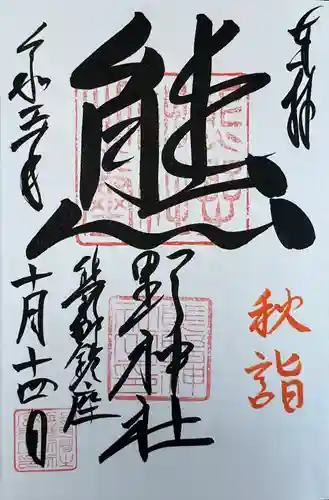 奉拝
秋詣
熊
野神社
熊野鎮座
令和五年
十月十四日